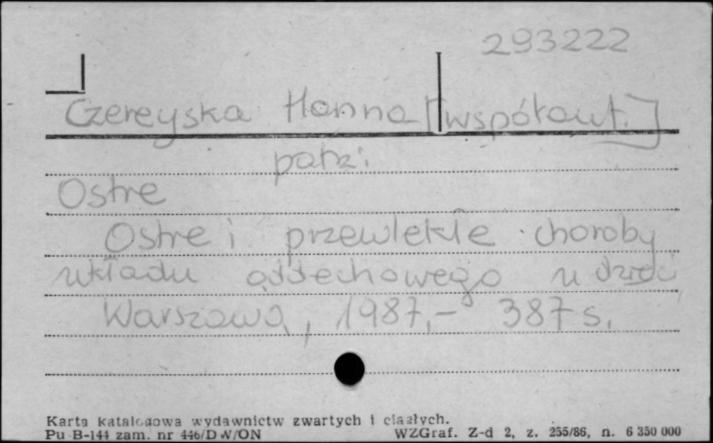 293222
Czereyska Hanna [współaut.]
patrz:
Ostre
Ostre i przewlekłe choroby
układu oddechowego u dzieci
Warszawa, 1987,- 387 s.
Karta katalogowa wydawnictw zwartych i ciągłych.
Pu B-144 zam. nr 446/D W/ON WZGraf. Z-d 2, z. 255/86, n. 6 350 000